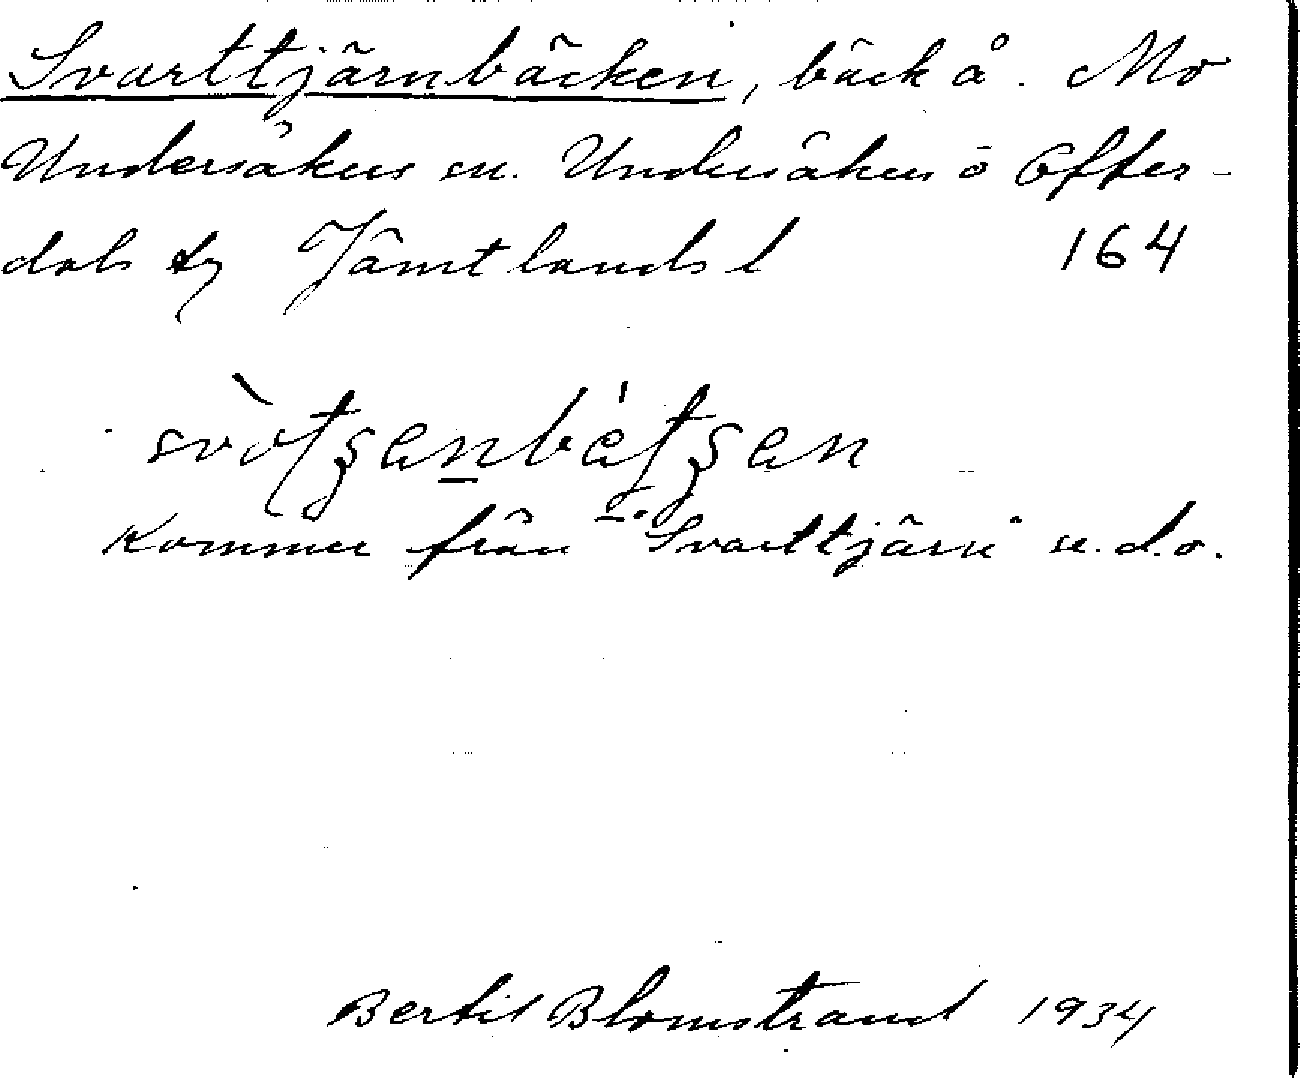 Svarttjärnbäcken, bäck å. Mo
Undersåkers sn. Undersåkers o Offer-
dals tg Jämtlands l 164
Kommer från Svarttjärn s.d.o.
Bertil Blomstrand 1934